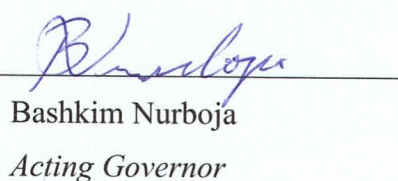 Bashkim Nurboja
Acting Governor